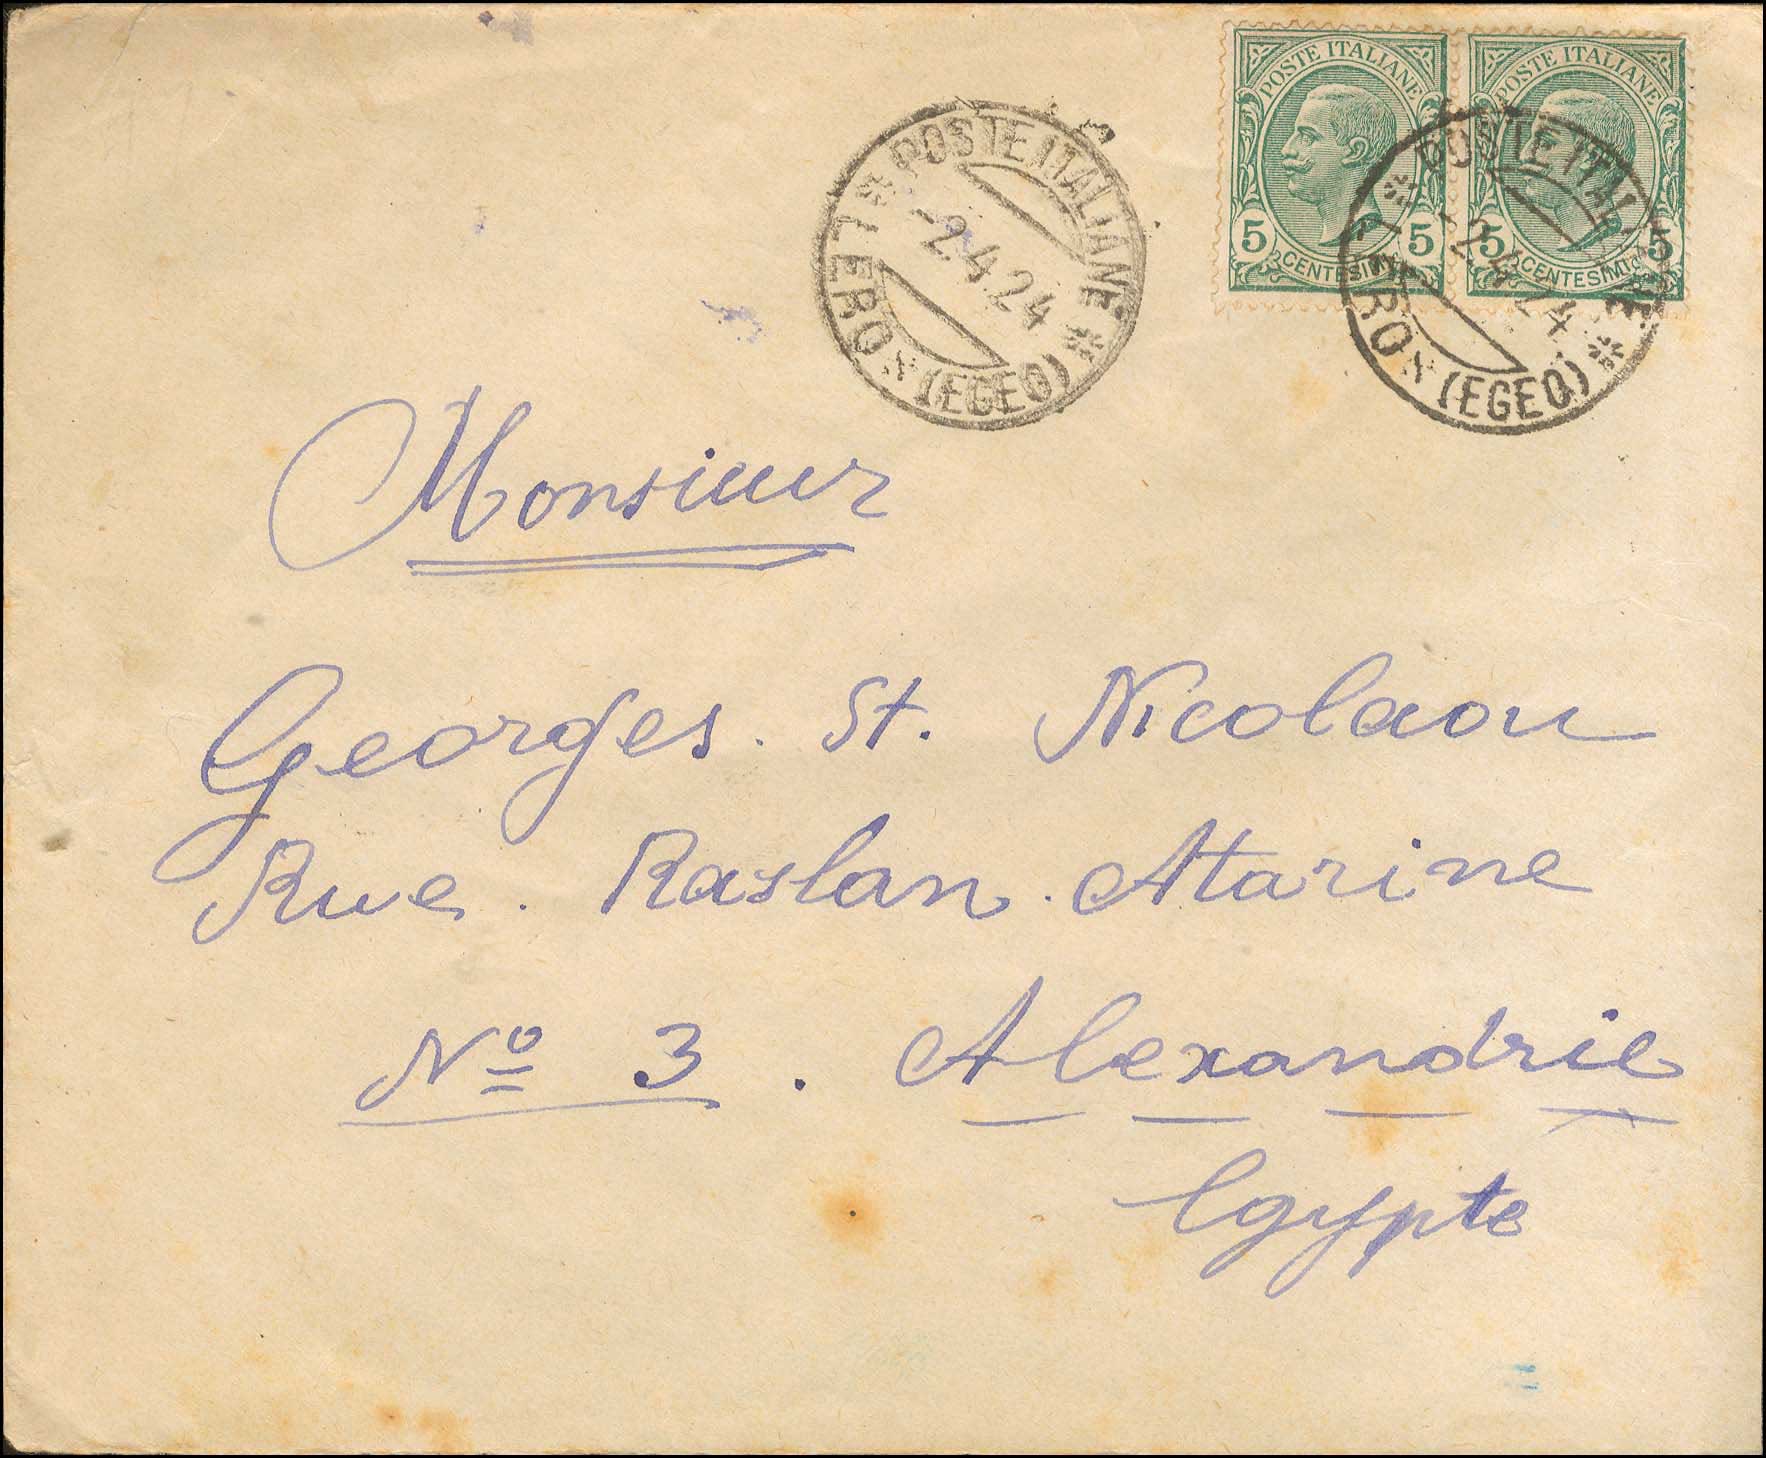 POSTE ITALIANE
5 5
CENTESIMI
POSTE ITALIANE
5 5
CENTESIMI
POSTE ITALIANE
-2.4.24
LERO (EGEO)
POSTE ITALIANE
-2.4.24
LERO (EGEO)
Monsieur
Georges. St. Nicolaou
Rue. Raslan. Attarine
Nº 3. Alexandrie
Egypte